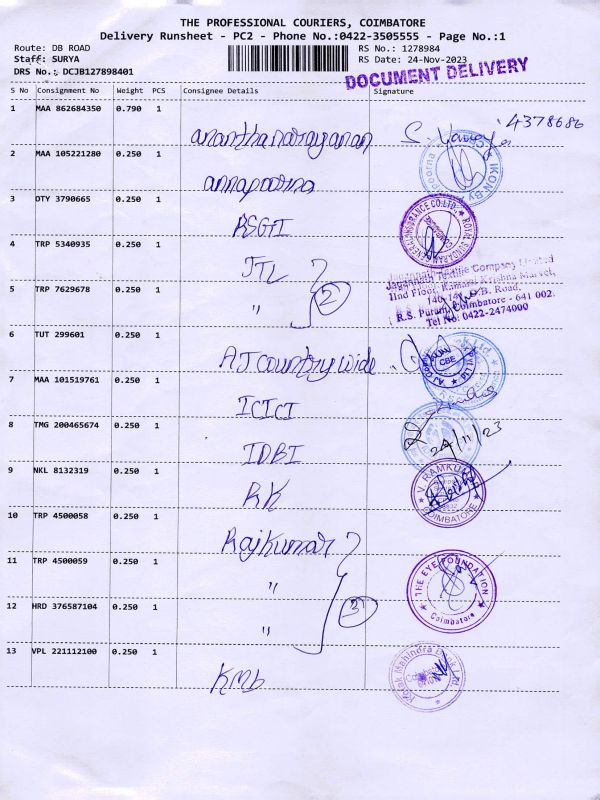 THE PROFESSIONAL COURIERS, COIMBATORE
Delivery Runsheet - PC2 - Phone No.:0422-3505555 - Page No.:1
Route: DB ROAD
RS No.: 1278984
Staff: SURYA
RS Date: 24-Nov-2023
DRS No.: DCJB127898401
DOCUMENT DELIVERY
S No Consignment No Weight PCS Consignee Details Signature
1 MAA 862684350 0.790 1
ananthanarayanan
4378686
2 MAA 105221280 0.250 1
annapoorna
IKON BY
3 DTY 3790665 0.250 1
RSGI
ROYAL SUNDARAM GENERAL INSURANCE CO. LTD.
4 TRP 5340935 0.250 1
JTL
Jagannath Textile Company Limited
IInd Floor, Kamaraj Krishna Marvel,
5 TRP 7629678 0.250 1
" 2
D.B. Road,
R.S. Puram, Coimbatore - 641 002.
Tel No: 0422-2474000
6 TUT 299601 0.250 1
AJ Country wide
CBE
7 MAA 101519761 0.250 1
ICICI
8 TMG 200465674 0.250 1
24/11/23
IDBI
9 NKL 8132319 0.250 1
RK
V. RAMKUMAR
COIMBATORE
10 TRP 4500058 0.250 1
Rajkumar
11 TRP 4500059 0.250 1
"
THE EYE FOUNDATION
Coimbatore
12 HRD 376587104 0.250 1
" 3
13 VPL 221112100 0.250 1
Kmb
Kotak Mahindra Bank Ltd